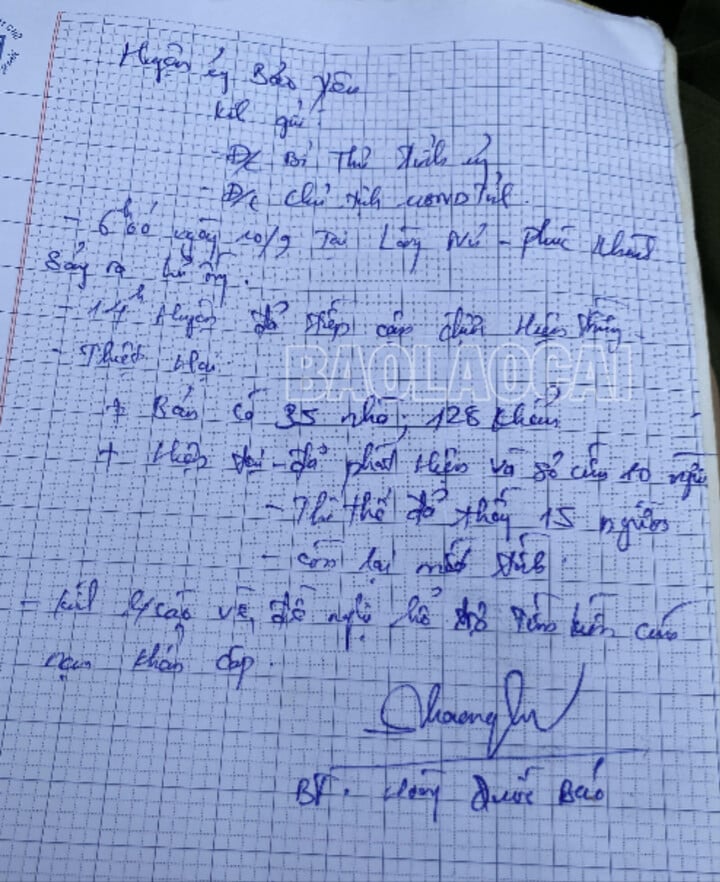 Huyện ủy Bảo Yên
Kính gửi:
- Đ/c Bí thư tỉnh ủy
- Đ/c chủ tịch UBND tỉnh.
- 6h00 ngày 10/9 Tại Làng Nủ - phúc Khánh
sảy ra lũ ống.
- 14h Huyện đã tiếp cận được Hiện trường.
- Thiệt Hại:
BAOLAOCAI
+ Bản có 35 nhà; 128 khẩu
+ Hiện tại - đã phát Hiện và sơ cứu 10 người
- Thi thể đã thấy 15 người
- còn lại mất tích.
- Kính b/cáo và đề nghị hỗ trợ tìm kiếm cứu
nạn khẩn cấp.
BT. Hoàng Quốc Bảo